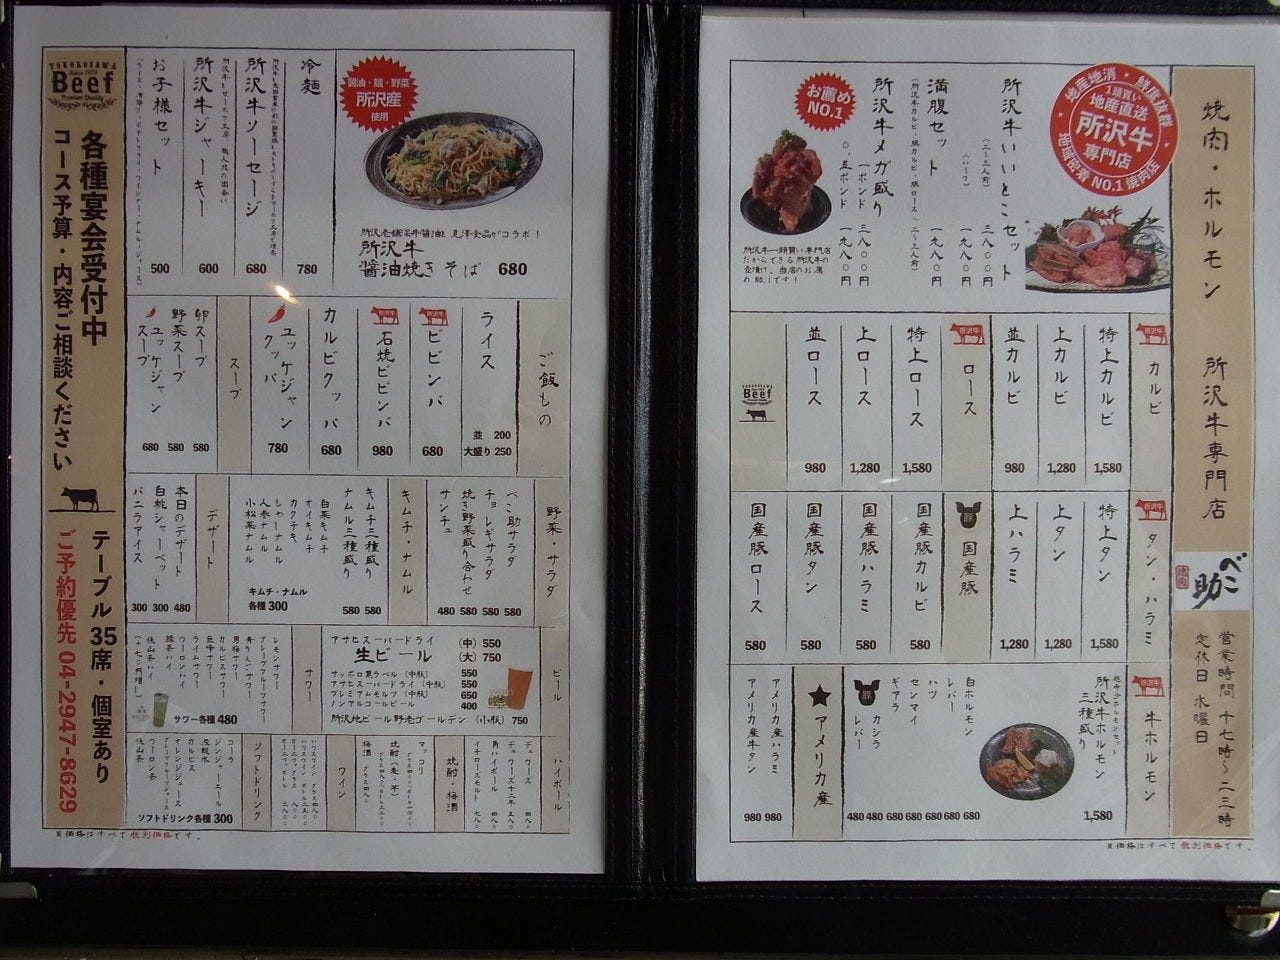 焼肉・ホルモン 所沢牛専門店
べこ助
焼肉
営業時間 十七時~二三時
定休日 水曜日
地産地消・鮮度抜群
1頭買い
地産直送
所沢牛
専門店
地域密着 NO.1 焼肉店
所沢牛いいとこセット
(二~三人前) 三八〇〇円
(ハーフ) 一九八〇円
満腹セット 一九八〇円
(所沢牛カルビ・豚カルビ・豚ロース/二~三人前)
所沢牛メガ盛り
一ポンド 三八〇〇円
〇.五ポンド 一九八〇円
お薦め
NO.1
所沢牛一頭買い専門店
だからできる所沢牛の
壺漬け。当店のお薦
めNO.1です!
所沢牛
カルビ
特上カルビ 1,580
上カルビ 1,280
並カルビ 980
所沢牛
ロース
特上ロース 1,580
上ロース 1,280
並ロース 980
Beef
所沢牛
タン・ハラミ
特上タン 1,580
上タン 1,280
上ハラミ 1,280
豚
国産豚
国産豚カルビ 580
国産豚ハラミ 580
国産豚タン 580
国産豚ロース 580
所沢牛
牛ホルモン
所沢牛ホルモン
三種盛り 1,580
白ホルモン 680
レバー 680
ハツ 680
センマイ 680
ギアラ 680
豚
カシラ 480
レバー 480
★アメリカ産
アメリカ産ハラミ 980
アメリカ産牛タン 980
※価格はすべて税別価格です。
醤油・麺・野菜
所沢産
使用
所沢老舗深井醤油と見澤食品がコラボ!
所沢牛
醤油焼きそば 680
冷麺 780
所沢牛ソーセージ 680
所沢牛ジャーキー 600
お子様セット 500
ご飯もの
ライス
並 200
大盛り 250
所沢牛
ビビンバ 680
所沢牛
石焼ビビンバ 980
カルビクッパ 680
ユッケジャン
クッパ 780
スープ
卵スープ 580
野菜スープ 580
ユッケジャン
スープ 680
野菜・サラダ
べこ助サラダ 580
チョレギサラダ 580
焼き野菜盛り合わせ 580
サンチュ 480
キムチ・ナムル
キムチ三種盛り 580
ナムル三種盛り 580
白菜キムチ
オイキムチ
カクテキ
もやしナムル
人参ナムル
小松菜ナムル
キムチ・ナムル
各種 300
デザート
本日のデザート 480
白桃シャーベット 300
バニラアイス 300
ビール
アサヒスーパードライ
生ビール
(中) 550
(大) 750
サッポロ黒ラベル (中瓶) 550
アサヒスーパードライ (中瓶) 550
プレミアムモルツ (中瓶) 650
ノンアルコールビール 400
所沢地ビール野老ゴールデン (小瓶) 750
サワー
レモンサワー
グレープフルーツサワー
青りんごサワー
男梅サワー
カルピスサワー
巨峰サワー
ライムサワー
ウーロンハイ
緑茶ハイ
狭山茶ハイ
サワー各種 480
ハイボール
デュワーズ 四八〇
デュワーズ十二年 五八〇
角ハイボール 四八〇
イチローズモルト 七八〇
焼酎・梅酒
マッコリ
焼酎(麦・芋)
梅酒 グラス四八〇
ワイン
ソフトドリンク
コーラ
ジンジャーエール
炭酸水
カルピス
オレンジジュース
グレープフルーツジュース
ウーロン茶
狭山茶
ソフトドリンク各種 300
YOKOROZAWA
Beef
Premium Quality
各種宴会受付中
コース予算・内容ご相談ください
テーブル35席・個室あり
ご予約優先 04-2947-8629
※価格はすべて税別価格です。